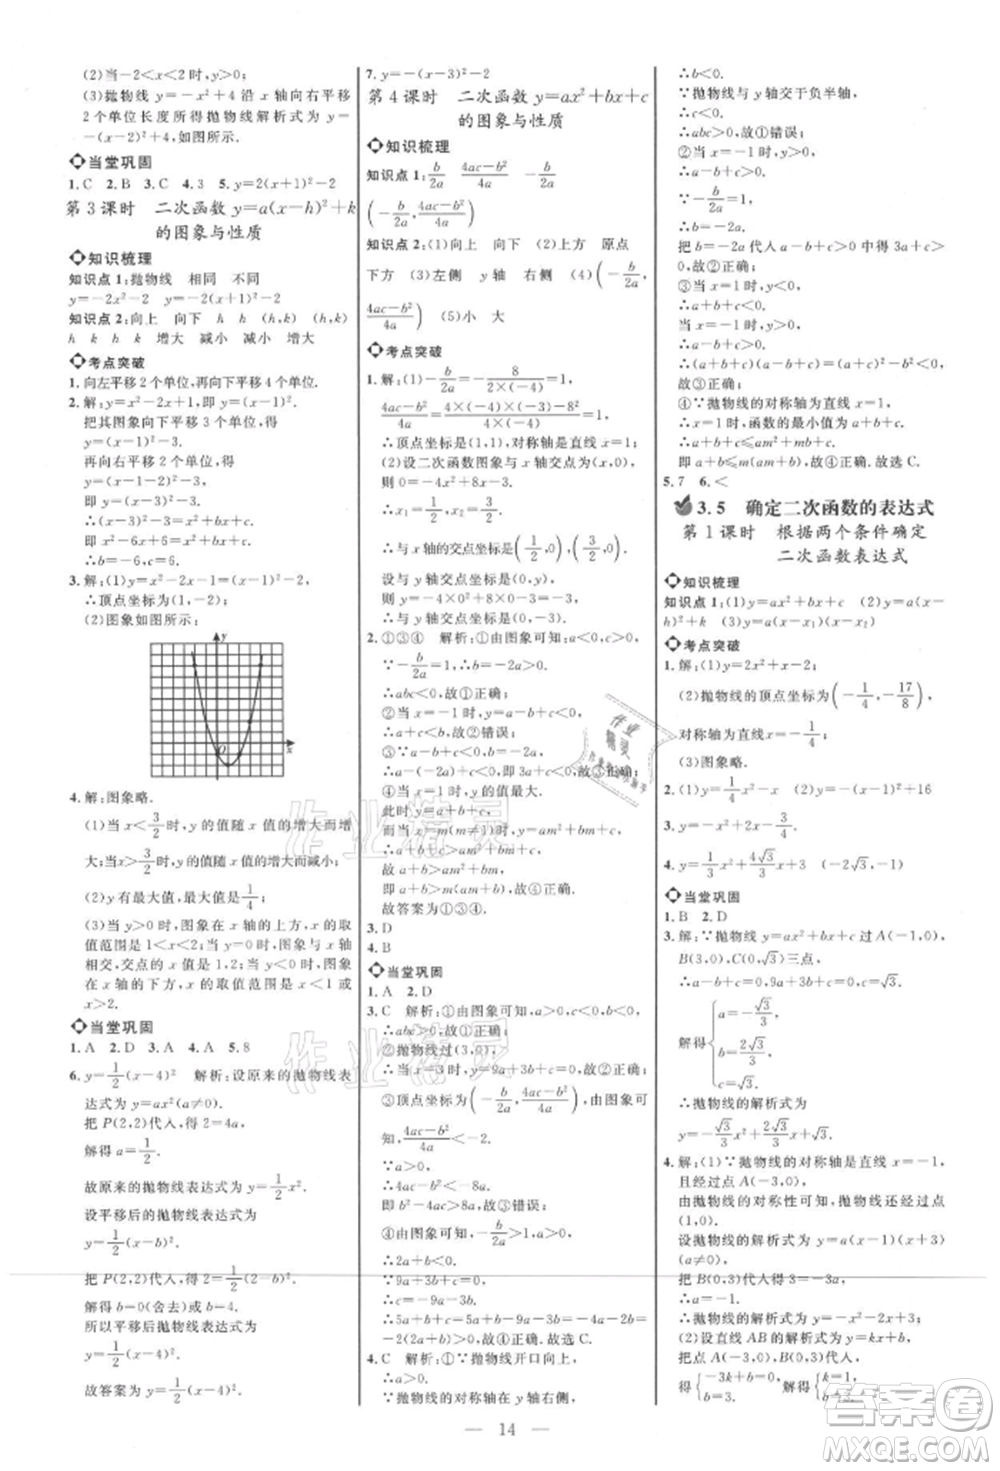 (2)当-2<x<2时,y>0;
(3)抛物线 y=-x²+4沿x轴向右平移
2个单位长度所得抛物线解析式为 y=
-(x-2)²+4,如图所示.
当堂巩固
1.C 2.B 3.C 4.3 5.y=2(x+1)²-2
第3课时 二次函数 y=a(x-h)²+k
的图象与性质
知识梳理
知识点1:抛物线 相同 不同
y=-2x²-2 y=-2(x+1)²-2
知识点2:向上 向下 h h (h,k) (h,k)
h k h k 增大 减小 减小 增大
考点突破
1.向左平移2个单位,再向下平移4个单位.
2.解:y=x²-2x+1,即 y=(x-1)².
把其图象向下平移3个单位,得
y=(x-1)²-3.
再向右平移2个单位,得
y=(x-3)²-3,
即 y=x²-6x+6.
∴(x-3)²-3=x²+bx+c.
即 x²-6x+6=x²+bx+c.
∴b=-6,c=6.
3.解:(1)y=x²-2x=(x-1)²-1,
∴顶点坐标为(1,-1).
(2)图象如图所示:
y
O
x
4.解:图象略.
(1)当x<3/2时,y的值随x值的增大而增
大;当x>3/2时,y的值随x值的增大而减小;
(2)y有最大值,最大值是1/4;
(3)当y>0时,图象在x轴的上方,x的取
值范围是1<x<2;当y=0时,图象与x轴
相交,交点的横坐标为1,2;当y<0时,图象
在x轴的下方,x的取值范围是x<1或
x>2.
当堂巩固
1.A 2.D 3.A 4.A 5.8
6.y=1/2(x-4)² 解析:设原来的抛物线表
达式为 y=ax²(a≠0).
把 P(2,2)代入,得2=4a,
解得 a=1/2.
故原来的抛物线表达式是 y=1/2x².
设平移后的抛物线表达式为
y=1/2(x-b)².
把 P(2,2)代入,得2=1/2(2-b)².
解得 b=0(舍去)或b=4.
所以平移后抛物线的表达式是
y=1/2(x-4)².
故答案为 y=1/2(x-4)².
7.y=-(x-3)²-2
第4课时 二次函数 y=ax²+bx+c
的图象与性质
知识梳理
知识点1:-b/2a (4ac-b²)/4a x=-b/2a
(-b/2a, (4ac-b²)/4a)
知识点2:(1)向上 向下 (2)上方 原点
下方 (3)左侧 y轴 右侧 (4)(-b/2a,
(4ac-b²)/4a) (5)小 大
考点突破
1.解:(1)-b/2a=-8/(2×(-4))=1,
(4ac-b²)/4a=(4×(-4)×(-3)-8²)/(4×(-4))=1,
∴顶点坐标是(1,1),对称轴是直线x=1.
(2)设二次函数图象与x轴交点为(x,0),
则0=-4x²+8x-3.
∴x₁=1/2,x₂=3/2.
∴与x轴的交点坐标是(1/2,0),(3/2,0).
设与y轴交点坐标是(0,y),
则y=-4×0²+8×0-3=-3.
∴与y轴交点坐标是(0,-3).
2.①③④ 解析:①由图象可知:a>0,c<0,
∵-b/2a>0,∴-2a>0.
∴abc<0,故①正确;
②当x=-1时,y=a-b+c=0,
∴a+c=b,故②错误;
③∵-b/2a<1,a>0,即3a>0,故③正确;
④当x=1时,y的值最小.
此时y=a+b+c,
而当x=m(m≠1)时,
y=am²+bm+c,
∴a+b+c<am²+bm+c.
故a+b<am²+bm,
即a+b<m(am+b),故④正确.
故答案为①③④.
3.D
4.B
当堂巩固
1.A 2.D
3.C 解析:①由图象可知:a<0,b>0,c<0,
∴abc>0,故①正确;
②抛物线过(3,0),
∴当x=3时,y=9a+3b+c=0,故②正确;
③顶点坐标为(-b/2a,(4ac-b²)/4a),由图象可
知,(4ac-b²)/4a<-2.
∵a<0,
∴4ac-b²>-8a.
即b²-4ac<8a,故③错误;
④由图象可知,-b/2a>1,a<0,
∴2a+b>0.
∵9a+3b+c=0,
∴c=-9a-3b.
∴5a+b+c=5a+b-9a-3b=-4a-2b=
-2(2a+b)<0,故④正确.故选C.
4.C 解析:①∵抛物线开口向上,
∴a>0.
∵抛物线的对称轴在y轴右侧,
∴b<0.
∵抛物线与y轴交于负半轴,
∴c<0.
∴abc>0,故①错误;
②当x=-1时,y>0,
∴a-b+c>0.
∵-b/2a=1,
∴b=-2a.
把b=-2a代入a-b+c>0中得3a+c>
0,故②正确;
③当x=1时,y<0,
∴a+b+c<0.
∴a+c<-b.
当x=-1时,y>0,
∴a-b+c>0.
∴(a+b+c)(a-b+c)=(a+c)²-b²<0,
故③正确;
④∵抛物线的对称轴为x=1,
∴x=1时,函数的最小值为a+b+c.
∴a+b+c≤am²+mb+c.
即a+b≤m(am+b),故④正确.故选C.
5.7 6.<
3.5 确定二次函数的表达式
第1课时 根据两个条件确定
二次函数表达式
知识梳理
知识点1:(1)y=ax²+bx+c (2)y=a(x-
h)²+k (3)y=a(x-x₁)(x-x₂)
考点突破
1.解:(1)y=2x²+x-2;
(2)抛物线的顶点坐标为(-1/4,-17/8),
对称轴为直线x=-1/4;
(3)图象略.
2.(1)y=1/4x² (2)y=2(x-1)²
3.y=-x²-2x-3/4.
4.y=1/3x²-(4√3/3)x+3 (√3,0)
当堂巩固
1.B 2.D
3.解:∵抛物线y=ax²+bx+c过A(-1,0),
B(3,0),C(0,√3)三点,
∴a-b+c=0,9a+3b+c=0,c=√3,
解得{a=-√3/3,
b=2√3/3,
c=√3.
∴抛物线的解析式为
y=-√3/3x²+2√3/3x+√3.
4.解:(1)∵抛物线的对称轴是直线x=-1,
且经过点A(-3,0),
由抛物线的对称性可知,抛物线还经过点
(1,0).
设抛物线的解析式为y=a(x-1)(x+3).
把B(0,3)代入得3=-3a.
∴a=-1.
∴抛物线的解析式为y=-x²-2x+3;
(2)设直线AB的解析式为y=kx+b,
把点A(-3,0),B(0,3)代入,
得{-3k+b=0,
b=3.
解得{k=1,
b=3.
14
作业精灵
作业精灵
作业
精灵
答案圈
MXQE.COM